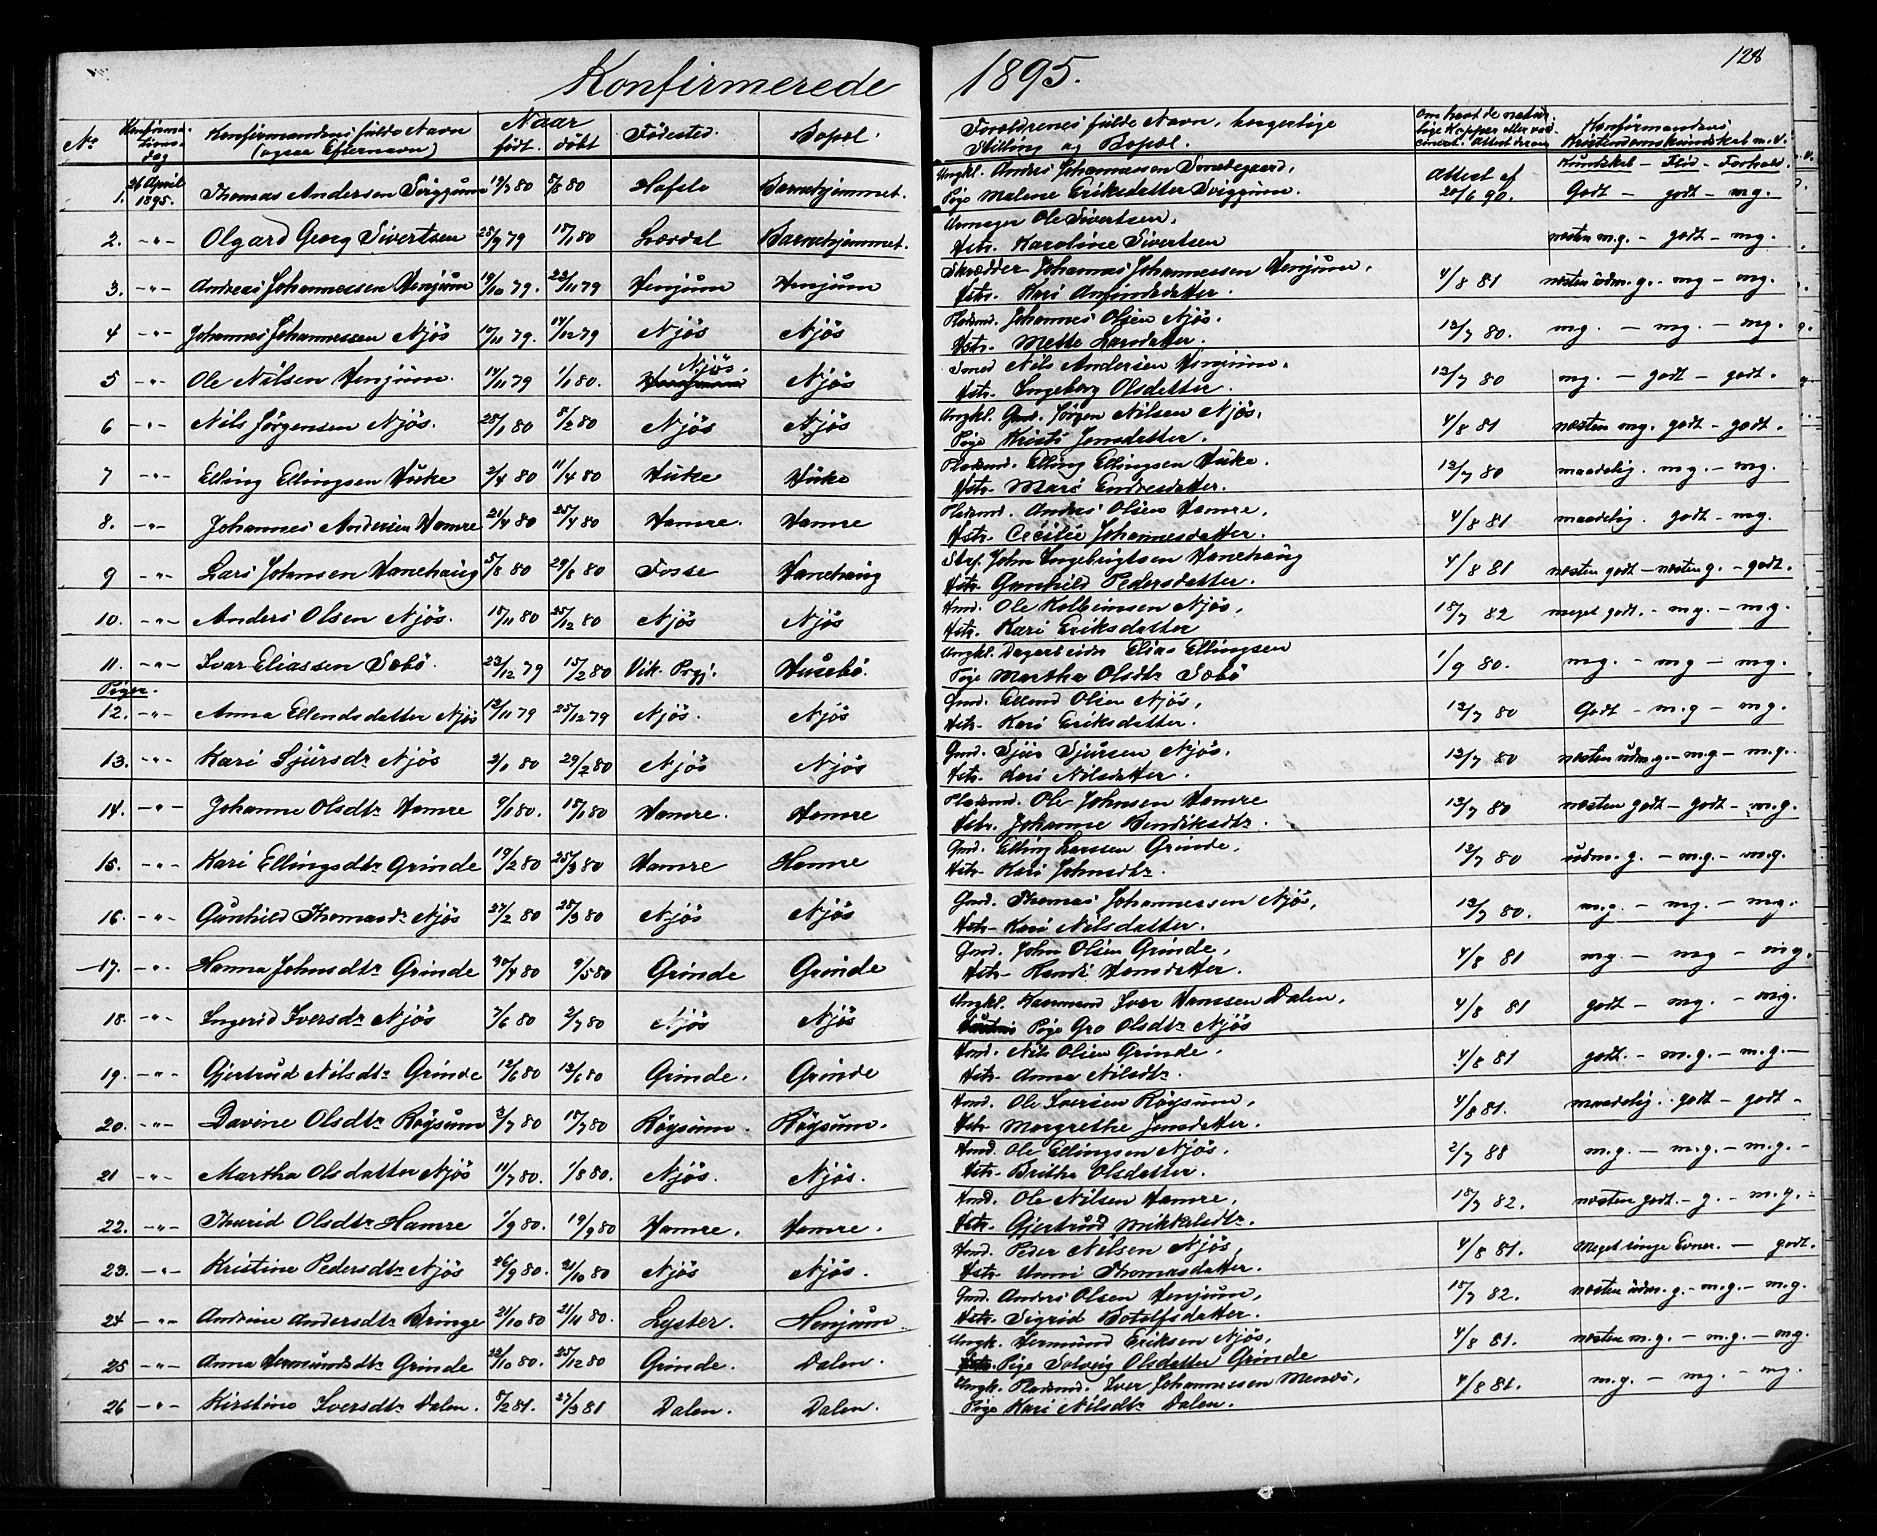 Konfirmerede 1895.
128
No Konfirmationsdag Konfirmandens fulde Navn (ogsaa Efternavn) Naar født. døbt Fødested. Bopæl. Forældrenes fulde Navn, borgerlige Stilling og Bopæl. Om havt de naturlige Kopper eller vaccineret. Attest derom Konfirmandens Kristendomskundskab m.v.
Kundskab - Flid - Forhold.
1. 26 April 1895. Thomas Andersen 19/7 80 8/8 80 Hafslo Barnehjemmet. Ungkl. Anders Johannessen Attest af 20/6 90. Godt - godt - mg.
Pige Malene Eriksdatter
2. -"- Olgard Georg Sivertsen 28/9 79 18/1 80 Lærdal Barnehjemmet. Ole Sivertsen. næsten m.g. - godt - mg.
Hstr. Karoline Sivertsen
3. -"- Andreas Johannessen Henjum 19/10 79. 23/11 79 Henjum Henjum Skrædder Johannes Johannessen Henjum. 4/8 81 næsten udm.g. - mg - mg.
Hstr. Kari Anfindsdatter.
4 -"- Johannes Johannessen Njøs 17/11 79. 14/12 79 Njøs Njøs Pladsmd. Johannes Olsen Njøs. 12/7 80. mg. - mg. - mg.
Hstr. Mette Larsdatter.
5 -"- Ole Nilsen Henjum. 14/11 79 1/1 80. Njøs. Njøs Smed Nils Andersen Henjum. 12/7 80 mg. - godt - godt.
Hstr. Ingeborg Olsdatter.
6 -"- Nils Jørgensen Njøs. 25/1 80 8/2 80 Njøs Njøs Ungkl. Gmd. Jørgen Nilsen Njøs. 4/8 81 næsten mg. godt - godt.
Pige Kristi Jensdatter.
7 -"- Elling Ellingsen Huke 2/4 80 11/4 80 Huke Huke Pladsmd. Elling Ellingsen Huke. 12/7 80 maadelig. mg. - mg.
Hstr. Mari Endresdatter.
8. -"- Johannes Andersen Hamre 21/4 80 25/4 80 Hamre. Hamre Pladsmd. Anders Olsen Hamre, 4/8 81 maadelig. godt - mg.
Hstr. Cecilie Johannesdatter.
9 -"- Lars Johnsen Hanehaug 5/8 80 29/8 80 Fosse Hanehaug John Ingebrigtsen Hanehaug 4/8 81 næsten godt - næsten g. - godt.
Hstr. Gunhild Pedersdatter.
10. -"- Anders Olsen Njøs. 18/11 80 25/12 80 Njøs Njøs Hmd. Ole Kolbeinsen Njøs, 18/7 82 meget godt. - m.g. - m.g.
Hstr. Kari Eriksdatter
11. -"- Ivar Eliassen Sæbø. 23/12 79 15/2 80 Vik. Prgj. Husebø. Ungkl. Dagarbeider Elias Ellingsen 1/9 80. mg. - mg - mg.
Pige Martha Olsdtr Sæbø
Piger.
12. -"- Anna Ellendsdatter Njøs 12/11 79 25/12 79 Njøs. Njøs Gmd. Ellend Olsen Njøs, 12/7 80 Godt - m.g - mg.
Hstr. Kari Eriksdatter.
13. -"- Kari Sjursdr Njøs 2/1 80 29/2 80 Njøs Njøs Gmd. Sjur Sjursen Njøs. 12/7 80 næsten udm.g. - m.g - m.g.
Hstr. Kari Nilsdatter.
14. -"- Johanne Olsdtr Hamre 9/1 80. 18/1 80 Hamre. Hamre Pladsmd. Ole Johnsen Hamre 12/7 80 næsten godt - godt - m.g.
Hstr. Johanne Bendiksdtr.
15. -"- Kari Ellingsdtr Grinde 19/2 80 25/3 80 Hamre Hamre Gmd. Elling Larssen Grinde, 12/7 80 udm.g. - m.g. - m.g.
Hstr. Kari Johnsdtr.
16. -"- Gunhild Thomasdr Njøs 27/2 80 28/3 80 Njøs Njøs Gmd. Thomas Johannessen Njøs, 12/7 80. m.g. - mg. - mg.
Hstr. Kari Nilsdatter.
17. -"- Hanna Johnsdtr Grinde 30/4 80 9/5 80 Grinde Grinde Gmd. John Olsen Grinde, 4/8 81 mg. - mg - mg.
Hstr. Randi Hansdatter.
18. -"- Ingerid Iversdr Njøs 7/6 80 2/7 80 Njøs Njøs Ungkl. Iver Hanssen Dalen, 4/8 81 godt - mg. - mg.
Pige Gro Olsdtr Njøs
19. -"- Gjertrud Nilsdtr Grinde 12/6 80 13/6 80 Grinde. Grinde Hmd. Nils Olsen Grinde. 4/8 81 godt. - m.g. - m.g. -
Hstr. Anna Nilsdtr.
20. -"- Davine Olsdtr Røysum 3/7 80 18/7 80 Røysum. Røysum. Hmd. Ole Iversen Røysum, 4/8 81. maadelig. godt - godt -
Hstr. Margrethe Jensdatter.
21 -"- Martha Olsdatter Njøs 11/7 80. 1/8 80. Njøs. Njøs. Hmd. Ole Ellingsen Njøs. 2/7 88 m.g. - m.g. - m.g. -
Hstr. Brithe Olsdatter.
22. -"- Thurid Olsdtr Hamre 1/9 80. 19/9 80 Hamre. Hamre. Hmd. Ole Nilsen Hamre, 18/7 82. næsten godt. - g. - m.g. -
Hstr. Gjertrud Mikkelsdtr.
23. -"- Kristine Pedersdtr Njøs 26/9 80. 31/10 80 Njøs Njøs. Hmd. Peder Nilsen Njøs, 4/8 81. Meget ringe Evner. - godt.
Hstr. Unni Thomasdatter.
24 -"- Andrine Andersdtr Bringe 21/10 80 21/11 80. Lyster. Henjum. Gmd. Anders Olsen Henjum, 18/7 82. næsten udm.g. - m.g. - m.g.
Hstr. Sigrid Botolfsdatter.
25 -"- Anna Hermundsdtr Grinde 23/10 80. 25/12 80 Grinde. Dalen. Ungk. Hermund Eriksen Njøs, 4/8 81. næsten m.g. - m.g. - mg.
Pige Solveig Olsdatter Grinde
26 -"- Kirstine Iversdtr Dalen. 8/2 81. 27/3 81 Dalen. Dalen. Ungk. Pladsmd. Iver Johannessen Menes, 4/8 81. m.g. - mg. - mg.
Pige Kari Nilsdtr Dalen.